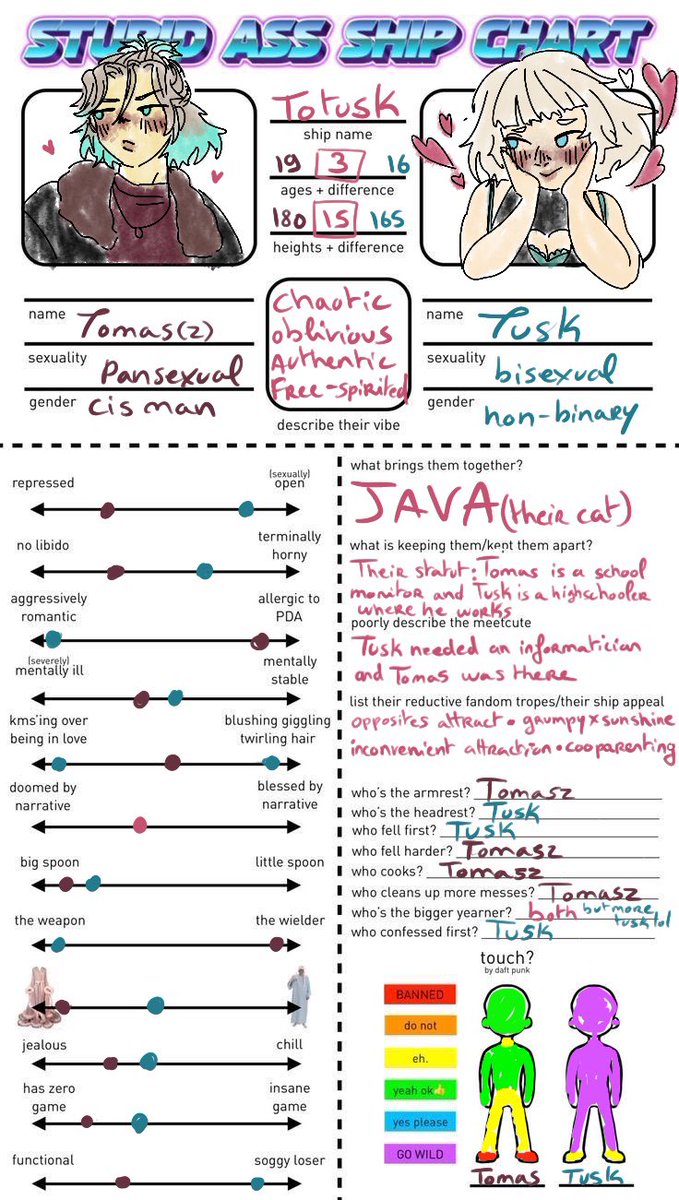 STUPID ASS SHIP CHART
Totusk
ship name
19 3 16
ages + difference
180 15 165
heights + difference
name Tomas(z)
sexuality Pansexual
gender cis man
Chaotic
oblivious
Authentic
Free-spirited
describe their vibe
name Tusk
sexuality bisexual
gender non-binary
repressed (sexually) open
no libido terminally horny
aggressively romantic allergic to PDA
(severely) mentally ill mentally stable
kms'ing over being in love blushing giggling twirling hair
doomed by narrative blessed by narrative
big spoon little spoon
the weapon the wielder
jealous chill
has zero game insane game
functional soggy loser
what brings them together?
JAVA (their cat)
what is keeping them/kept them apart?
Their statut: Tomas is a school
monitor and Tusk is a highschooler
where he works
poorly describe the meetcute
Tusk needed an informatician
and Tomas was there
list their reductive fandom tropes/their ship appeal
opposites attract • grumpy x sunshine
inconvenient attraction • cooparenting
who's the armrest? Tomasz
who's the headrest? Tusk
who fell first? Tusk
who fell harder? Tomasz
who cooks? Tomasz
who cleans up more messes? Tomasz
who's the bigger yearner? both but more tusk lol
who confessed first? Tusk
touch?
by daft punk
BANNED
do not
eh.
yeah ok👍
yes please
GO WILD
Tomas Tusk